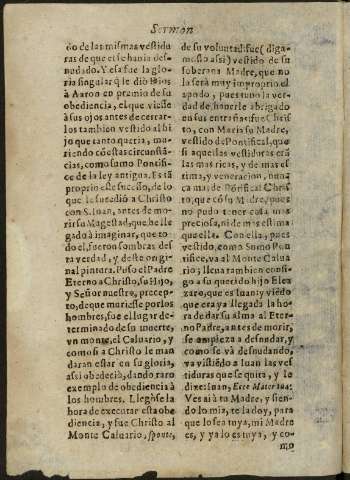 Sermon
do de las mismas vestidu
ras de que el se hauia des-
nudado. Y essa fue la glo-
ria singular q̃ le dió Dios
à Aaron en premio de su
obediencia, el que viesse
à sus ojos antes de cerrar-
los tambien vestido al hi
jo que tanto queria, mu-
riendo cõ estas circunstã-
cias, como sumo Pontifi-
ce de la ley antigua. Es tã
proprio este sucesso, de lo
que le sucediò a Christo
con S. Iuan, antes de mo-
rir su Magestad, que he lle
gado à imaginar, que to-
do el, fueron sombras des
ta verdad, y deste origi-
nal pintura. Puso el Padre
Eterno a Christo, su Hijo,
y Señor nuestro, precep-
to, de que muriesse por los
hombres, fue el lugar de-
terminado de su muerte,
vn monte, el Caluario, y
como si a Christo le man
daran estar en su gloria,
assi obedeciò, dando raro
exemplo de obediencia à
los hombres. Llegòse la
hora de executar esta obe
diencia, y fue Christo al
Monte Caluario, sponte,
de su voluntad: fue (diga-
moslo assi) vestido de su
soberana Madre, que no
la serà muy improprio el
apodo, pues tuuo la ver-
dad de hauerle abrigado
en sus entrañas: fue Chris
to, con Maria su Madre,
vestido de Pontifical, que
si aquellas vestiduras erã
las mas ricas, y de mas es-
tima, y veneracion, nun
ca mas de Põtifical Chris
to, que cõ su Madre, pues
no pudo tener cosa mas
preciosa, ni de mas estima
que ella. Con ella, pues
vestido, como Sumo Pon
tifice, va al Monte Calua
rio; lleua tambien consi-
go a su querido hijo Elea
zaro, que es Iuan: y viẽdo
que era ya llegada la ho-
ra de dar su alma al Eter-
no Padre, antes de morir,
se empieza a desnudar, y
como se và desnudando,
va vistiẽdo a Iuan las ves
tiduras que se quita, y le
dize: Iuan, Ecce Mater tua:
Ves ai à tu Madre, y sien-
do lo mia, te la doy, para
que lo sea tuya, mi Madre
es, y ya lo es tuya, y co-
mo